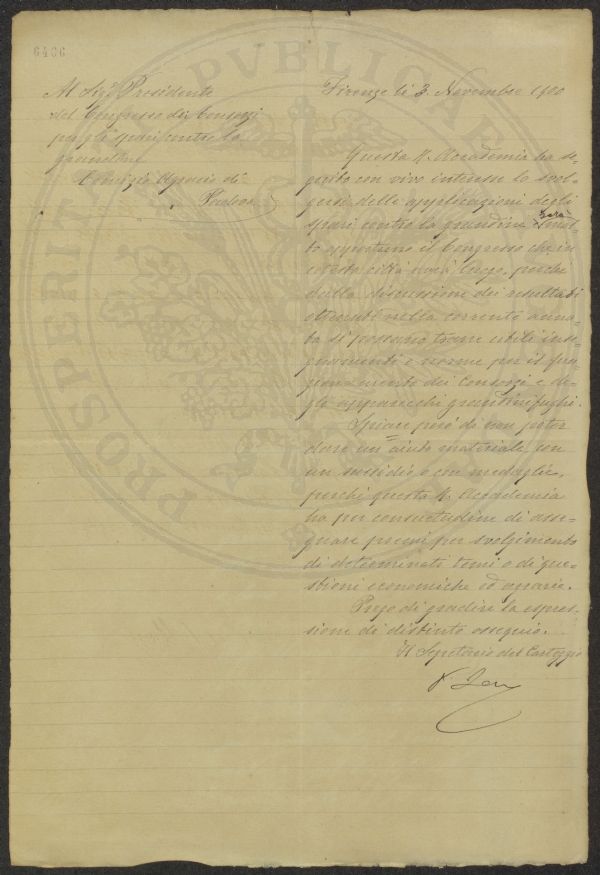 6406
Al Sigr Presidente
del Congresso dei Consorzi
per gli spari contro la
grandine
Comizio Agrario di
Padova
Firenze li 3. Novembre 1900
Questa R. Accademia ha se-
guito con vivo interesse lo svol-
gersi delle applicazioni degli
spari contro la grandine e
sarà
mol-
to opportuno il Congresso che in
codesta città avrà luogo, perchè
dalla discussione dei resultati
ottenuti nella corrente anna-
ta si possano trarre utili inse-
gnamenti e norme per il fun-
zionamento dei Consorzi e de-
gli apparecchi grandinifughi.
Spiace però di non poter
dare un aiuto materiale con
un sussidio o con medaglie,
perchè questa R. Accademia
ha per consuetudine di asse-
gnare premi per svolgimento
di determinati temi o di que-
stioni economiche ed agrarie.
Prego di gradire la espres-
sione di distinto ossequio.
Il Segretario del Carteggio
PROSPERITATI PVBLICAE